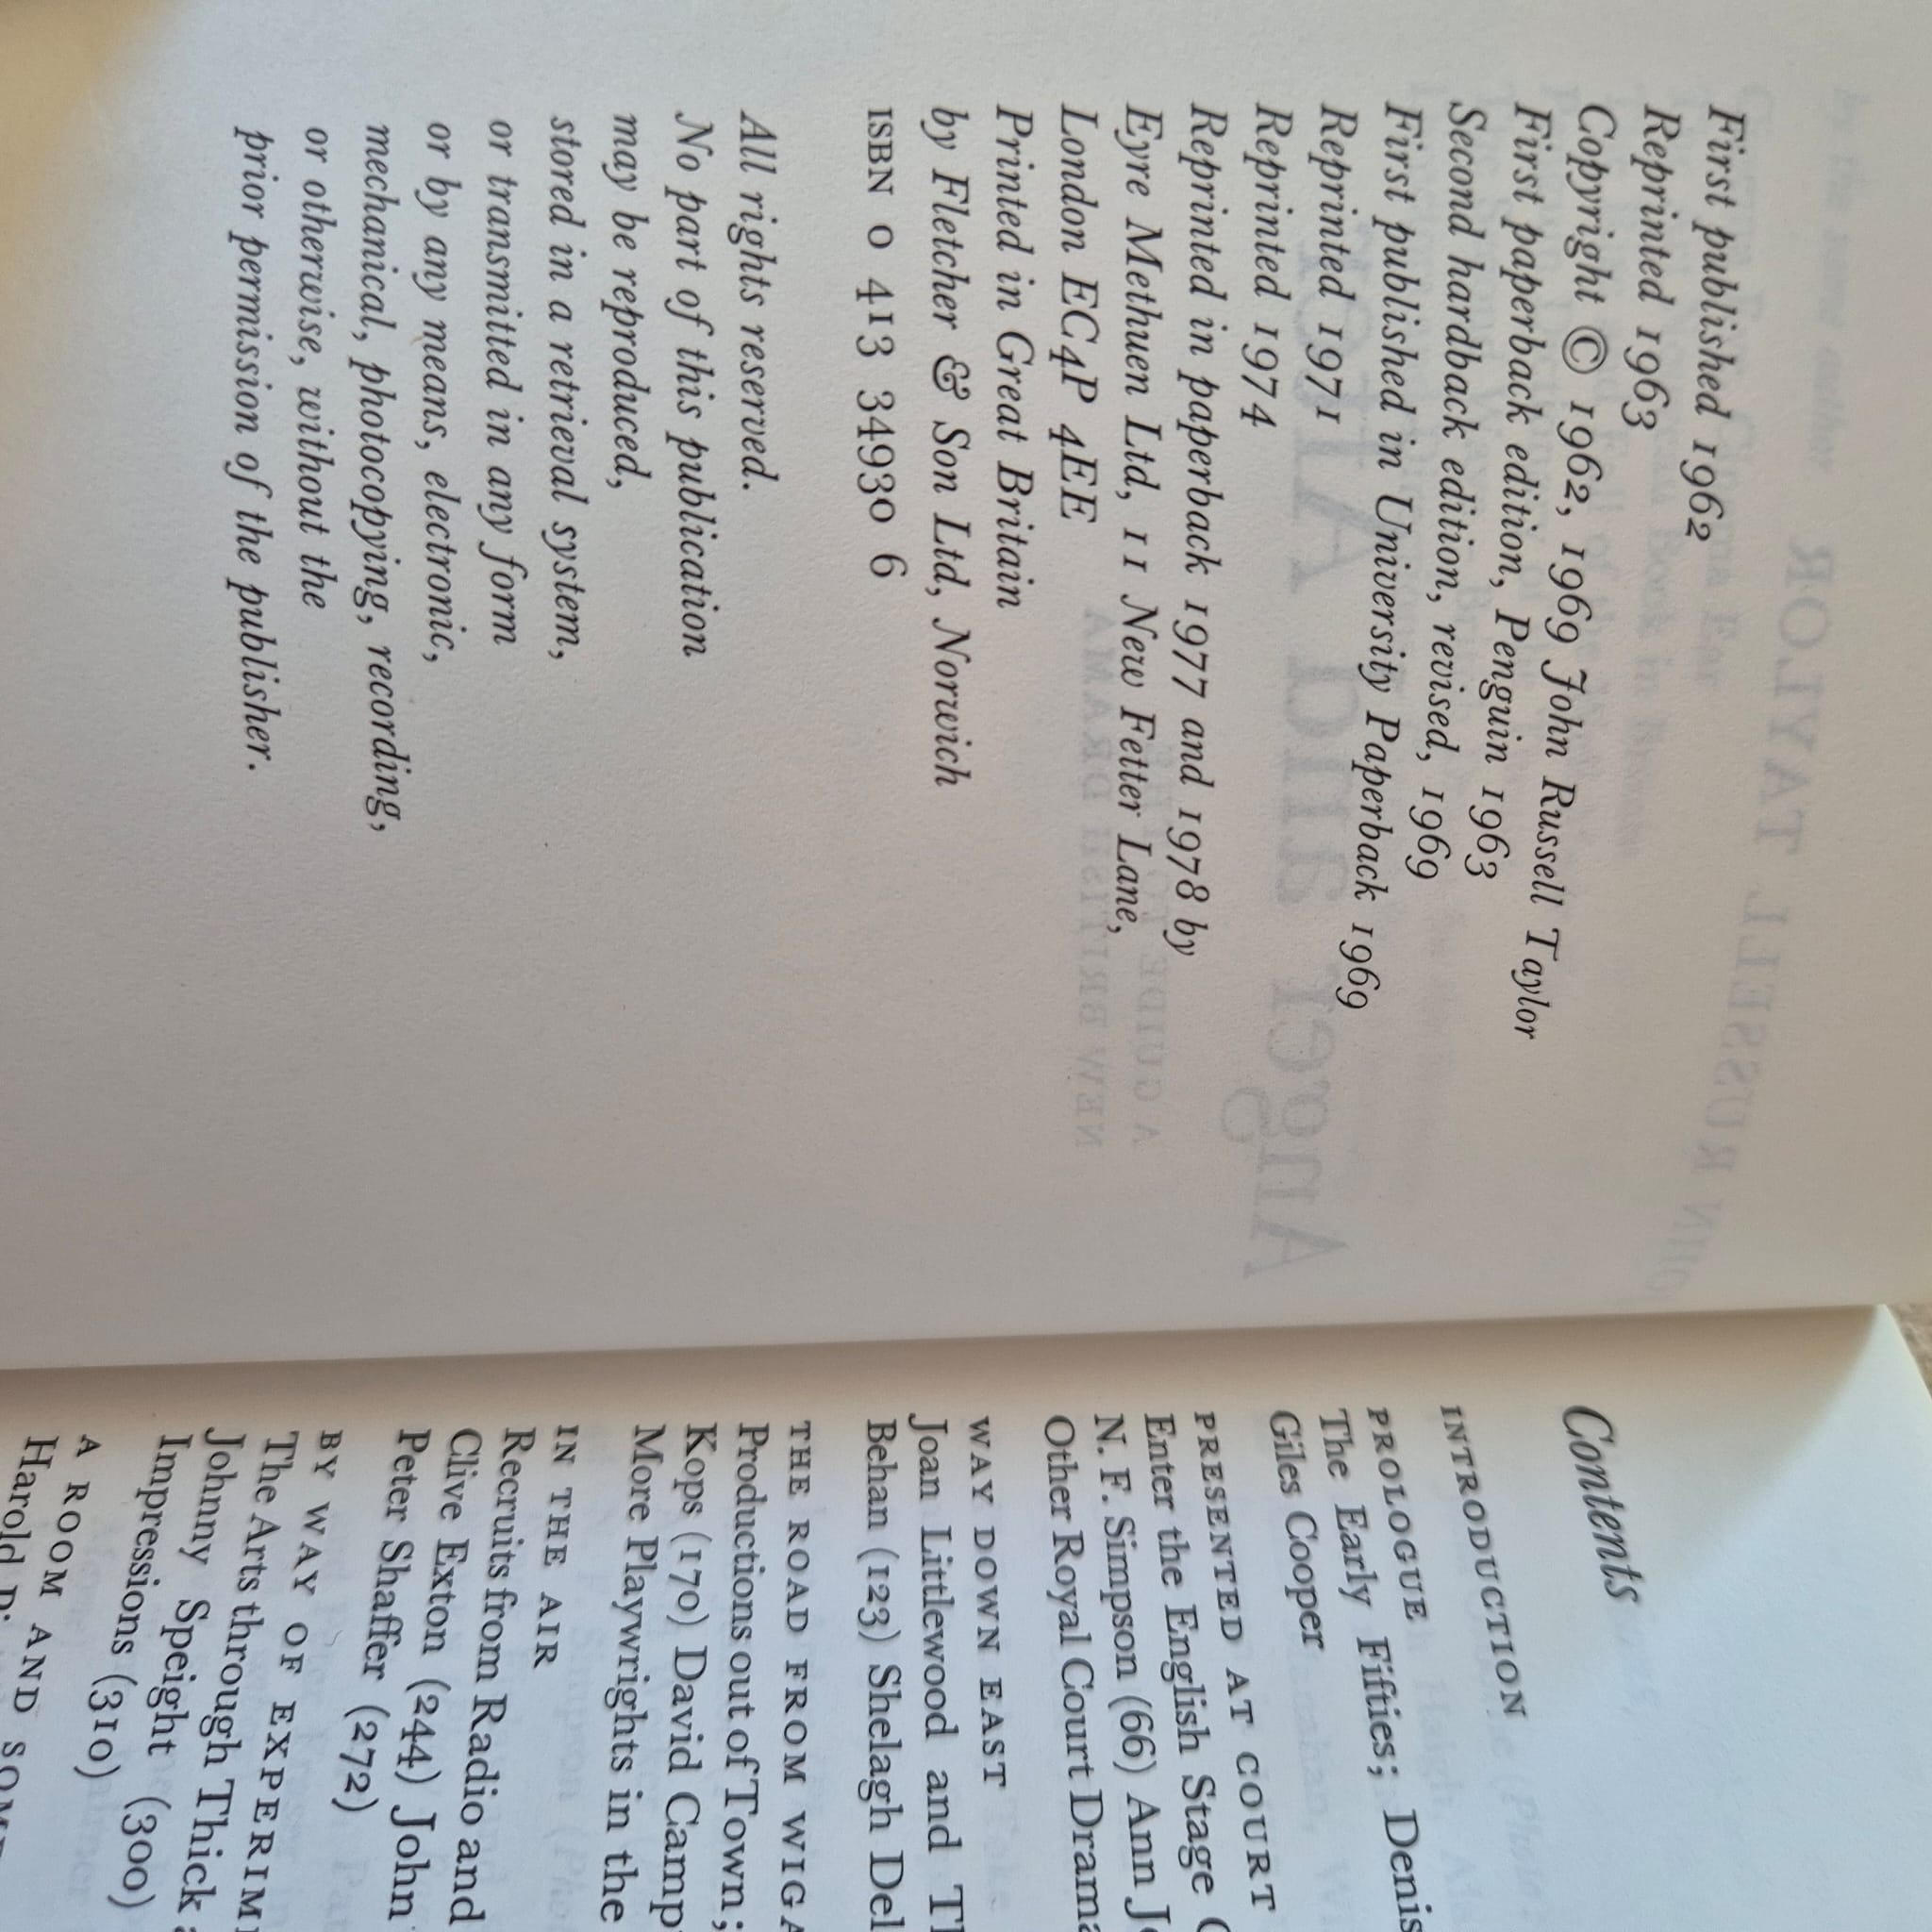 First published 1962
Reprinted 1963
Copyright © 1962, 1969 John Russell Taylor
First paperback edition, Penguin 1963
Second hardback edition, revised, 1969
First published in University Paperback 1969
Reprinted 1971
Reprinted 1974
Reprinted in paperback 1977 and 1978 by
Eyre Methuen Ltd, 11 New Fetter Lane,
London EC4P 4EE
Printed in Great Britain
by Fletcher & Son Ltd, Norwich
ISBN 0 413 34930 6
All rights reserved.
No part of this publication
may be reproduced,
stored in a retrieval system,
or transmitted in any form
or by any means, electronic,
mechanical, photocopying, recording,
or otherwise, without the
prior permission of the publisher.
Contents
INTRODUCTION
PROLOGUE
The Early Fifties; Denis
Giles Cooper
PRESENTED AT COURT
Enter the English Stage
N. F. Simpson (66) Ann
Other Royal Court
WAY DOWN EAST
Joan Littlewood and
Behan (123) Shelagh
THE ROAD FROM
Productions out of Town;
Kops (170) David
More Playwrights in the
IN THE AIR
Recruits from Radio and
Clive Exton (244) John
Peter Shaffer (272)
BY WAY OF
The Arts through Thick
Johnny Speight (300)
Impressions (310)
A ROOM AND
Harold